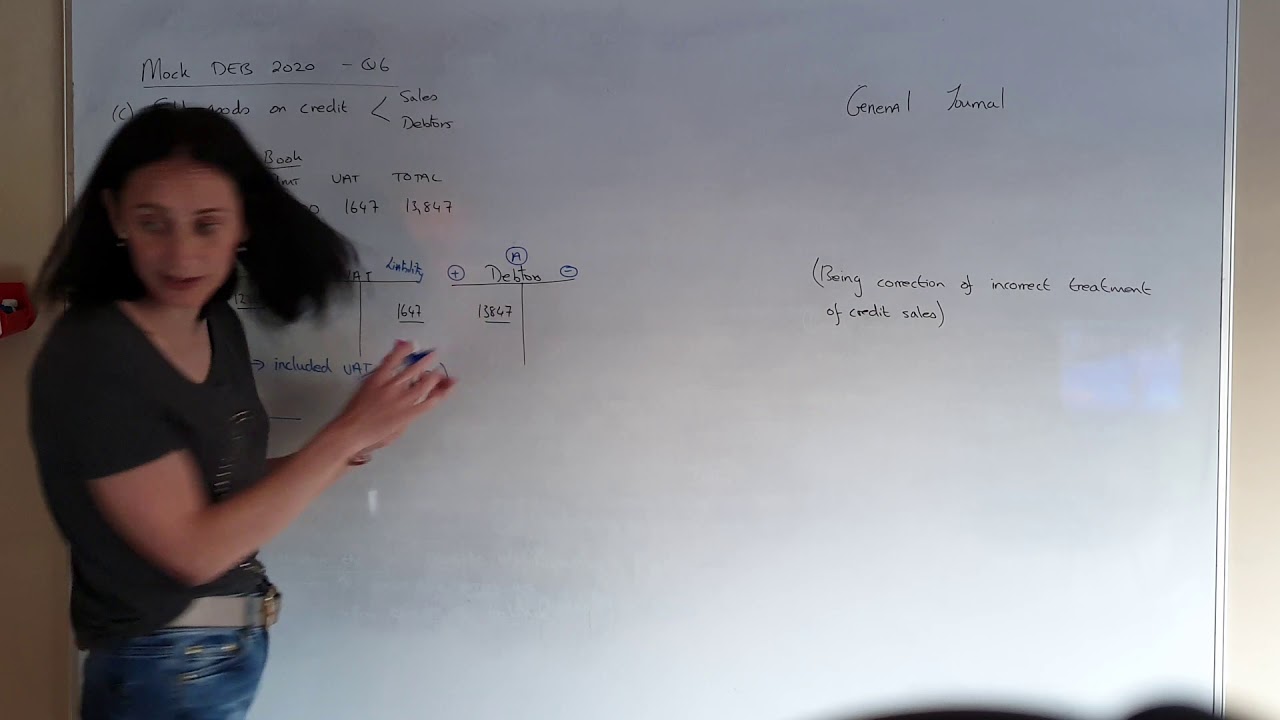 Mock DEB 2020 - Q6
(c) goods on credit < Sales
Debtors
Book
VAT TOTAL
1647 13,847
Liability + A Debtors -
12
1647 13847
→ included VAT
General Journal
(Being correction of incorrect treatment
of credit sales)